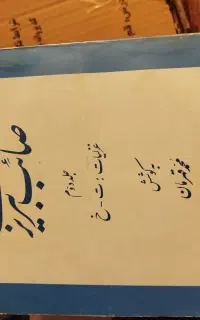 صائب تبریزی
جلد دوم
غزلیات: ت - خ
به کوشش
محمد قهرمان